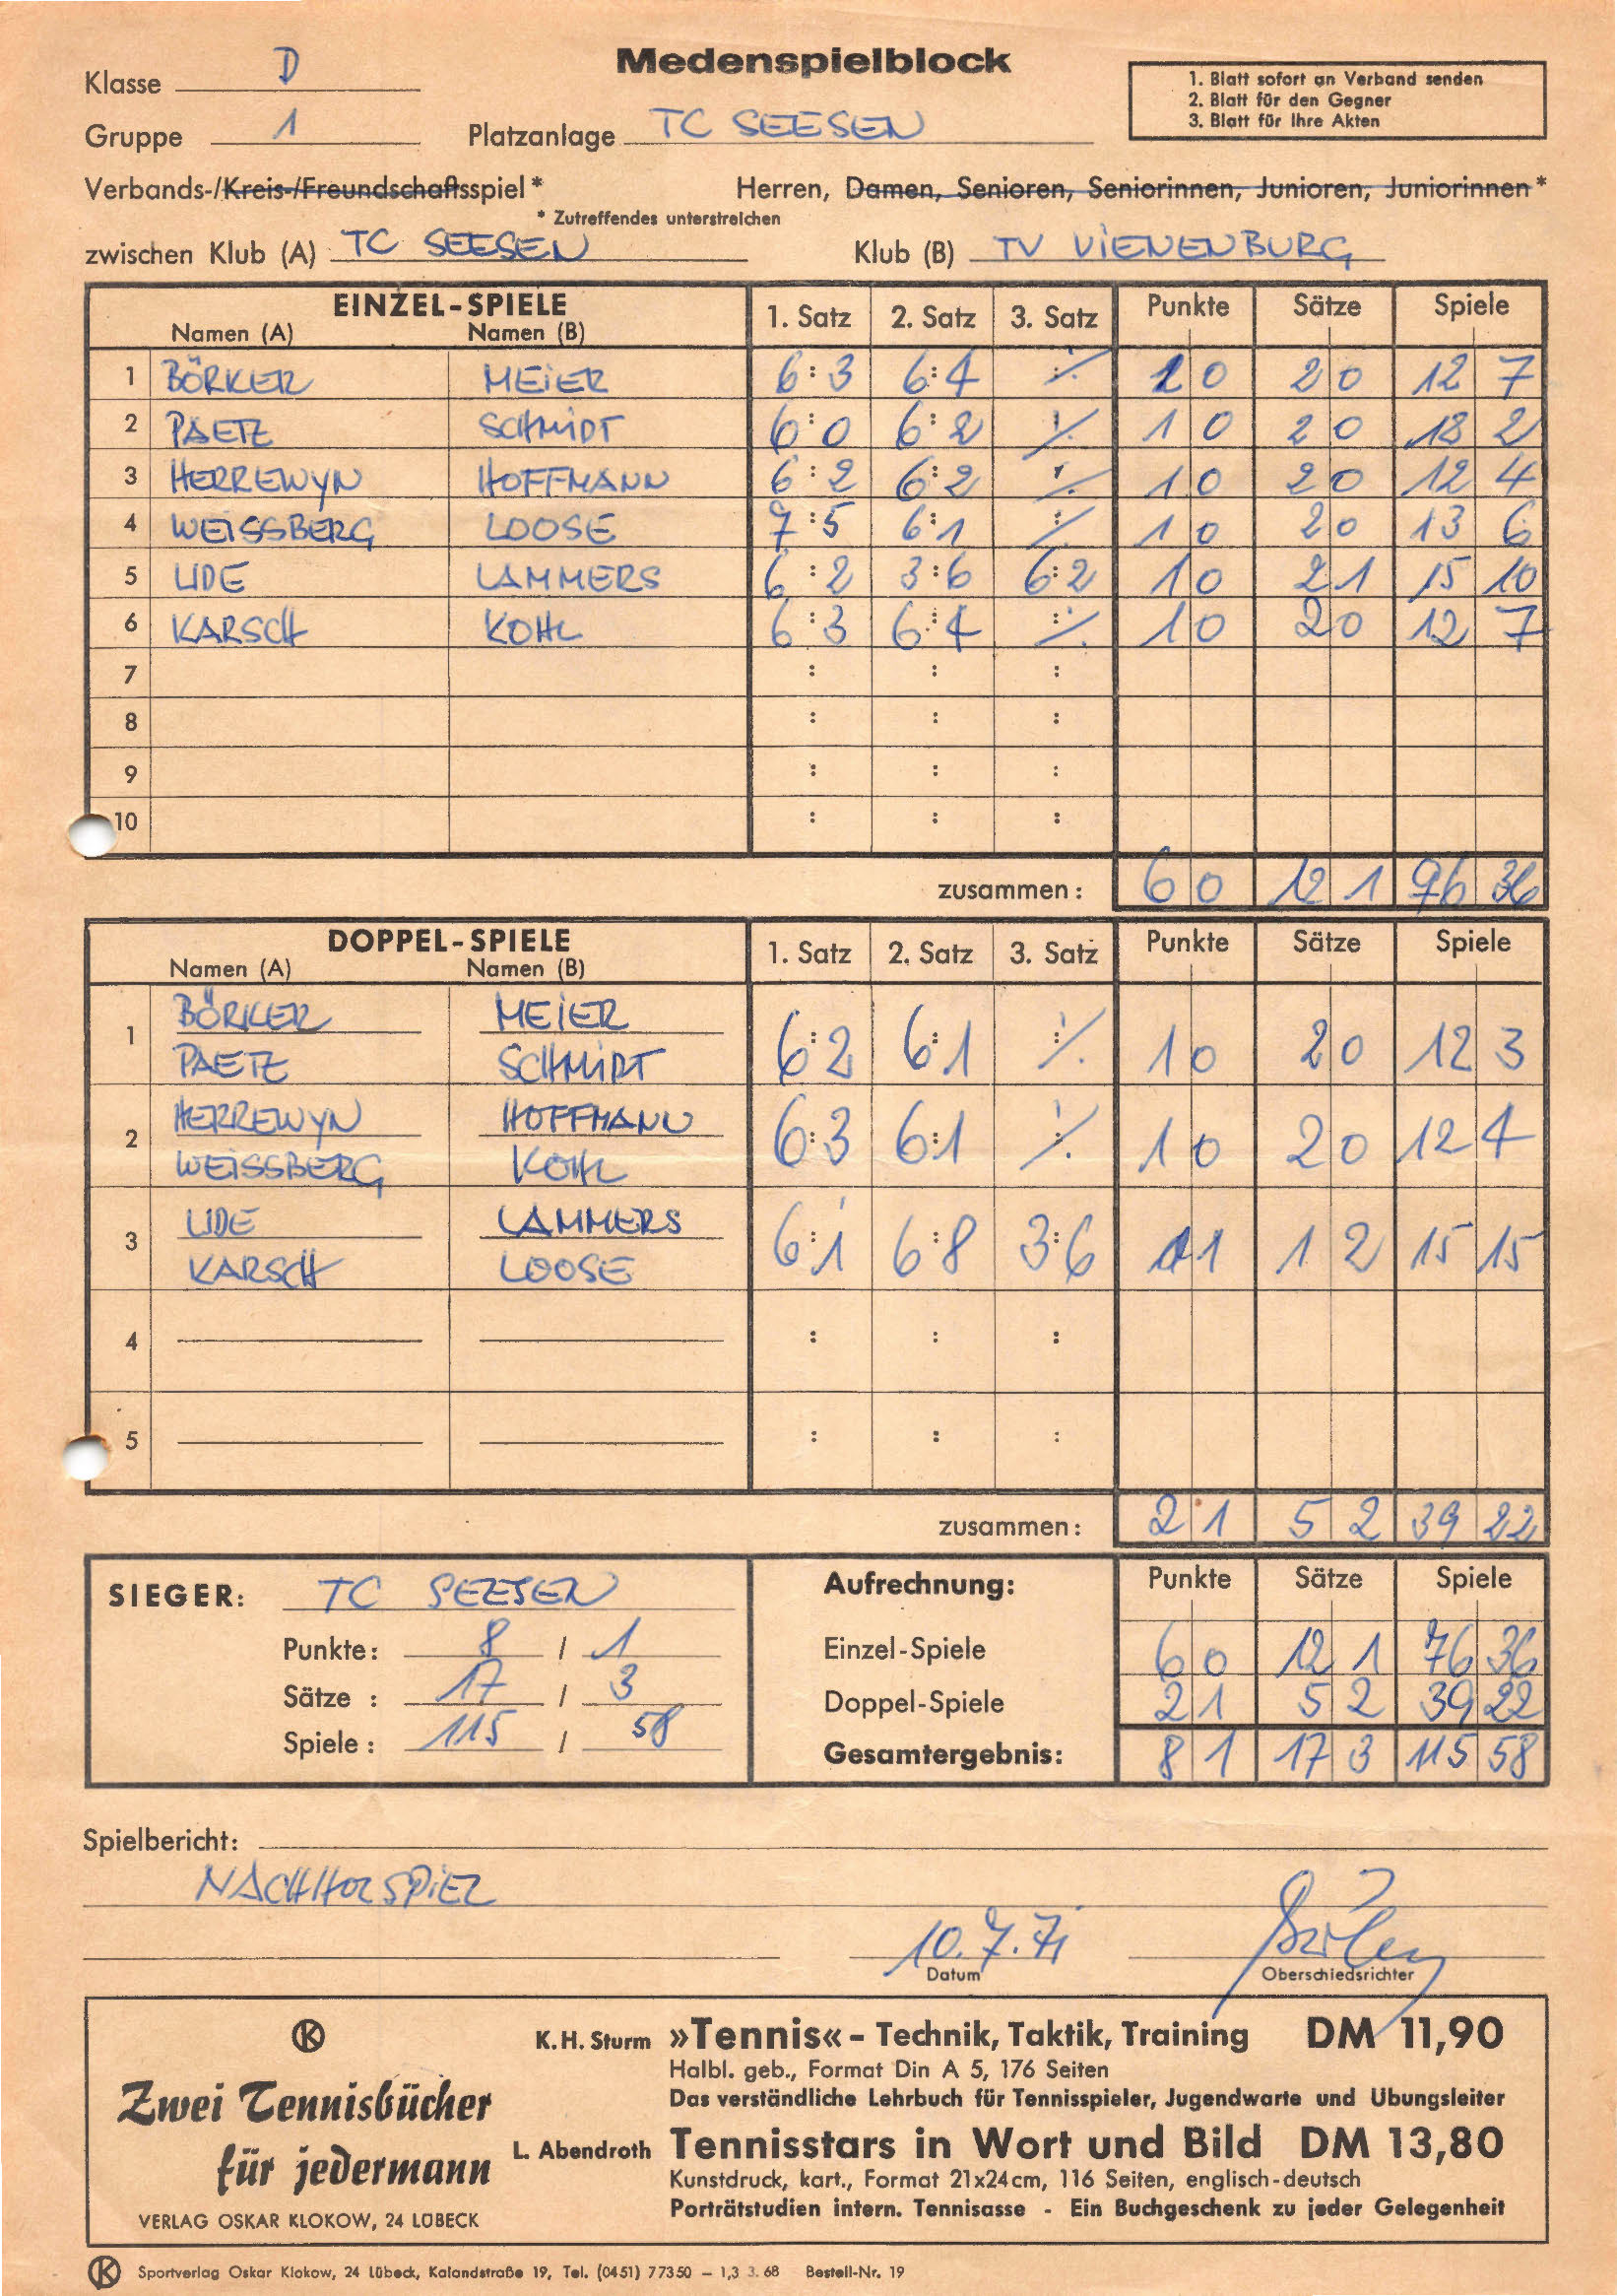 Medenspielblock
Klasse D
1. Blatt sofort an Verband senden
2. Blatt für den Gegner
3. Blatt für Ihre Akten
Gruppe 1 Platzanlage TC SEESEN
Verbands-/Kreis-/Freundschaftsspiel * Herren, Damen, Senioren, Seniorinnen, Junioren, Juniorinnen *
* Zutreffendes unterstreichen
zwischen Klub (A) TC SEESEN Klub (B) TV VIENENBURG
EINZEL-SPIELE 1. Satz 2. Satz 3. Satz Punkte Sätze Spiele
Namen (A) Namen (B)
1 BÖRKER MEIER 6:3 6:4 ⁒ 1 0 2 0 12 7
2 PAETZ SCHMIDT 6:0 6:2 ⁒ 1 0 2 0 12 2
3 HERREWYN HOFFMANN 6:2 6:2 ⁒ 1 0 2 0 12 4
4 WEISSBERG LOOSE 7:5 6:1 ⁒ 1 0 2 0 13 6
5 UDE LAMMERS 6:2 3:6 6:2 1 0 2 1 15 10
6 KARSCH KOHL 6:3 6:4 ⁒ 1 0 2 0 12 7
7 : : :
8 : : :
9 : : :
10 : : :
zusammen: 6 0 12 1 76 36
DOPPEL-SPIELE 1. Satz 2. Satz 3. Satz Punkte Sätze Spiele
Namen (A) Namen (B)
BÖRKER MEIER
1 6:2 6:1 ⁒ 1 0 2 0 12 3
PAETZ SCHMIDT
HERREWYN HOFFMANN
2 6:3 6:1 ⁒ 1 0 2 0 12 4
WEISSBERG KOHL
UDE LAMMERS
3 6:1 6:8 3:6 1 1 2 15 15
KARSCH LOOSE
4 : : :
5 : : :
zusammen: 2 1 5 2 39 22
SIEGER: TC SEESEN Aufrechnung: Punkte Sätze Spiele
Punkte: 8 / 1 Einzel-Spiele 6 0 12 1 76 36
Sätze : 17 / 3 Doppel-Spiele 2 1 5 2 39 22
Spiele : 115 / 58 Gesamtergebnis: 8 1 17 3 115 58
Spielbericht:
NACHHOLSPIEL
10.7.71
Datum Oberschiedsrichter
K
Zwei Tennisbücher
für jedermann
VERLAG OSKAR KLOKOW, 24 LÜBECK
K. H. Sturm »Tennis« – Technik, Taktik, Training DM 11,90
Halbl. geb., Format Din A 5, 176 Seiten
Das verständliche Lehrbuch für Tennisspieler, Jugendwarte und Übungsleiter
L. Abendroth Tennisstars in Wort und Bild DM 13,80
Kunstdruck, kart., Format 21x24cm, 116 Seiten, englisch-deutsch
Porträtstudien intern. Tennisasse - Ein Buchgeschenk zu jeder Gelegenheit
K Sportverlag Oskar Klokow, 24 Lübeck, Kalandstraße 19, Tel. (0451) 77350 – 1,3 3. 68 Bestell-Nr. 19